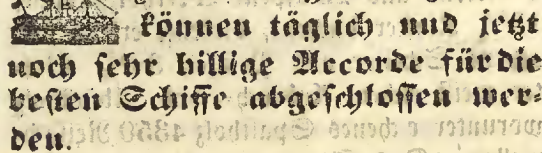 können täglich und jetzt
noch sehr billige Accorde für die
besten Schiffe abgeschlossen wer-
den.